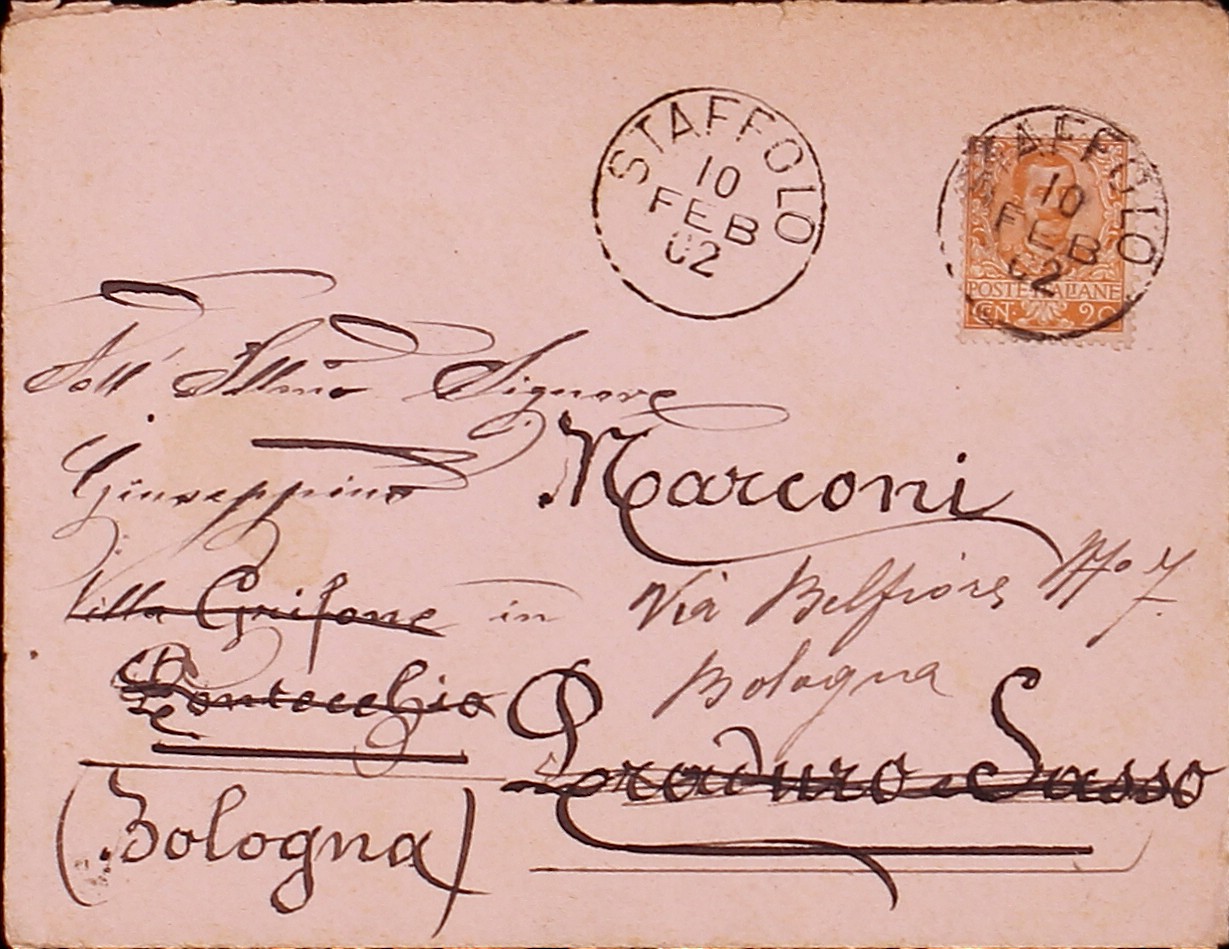 STAFFOLO
10
FEB
02
STAFFOLO
10
FEB
02
POSTE ITALIANE
CEN. 20
All' Illmo Signore
Giuseppino Marconi
Villa Grifone in Via Belfiore No 7
Bologna
Pontecchio
Praduro e Sasso
(Bologna)